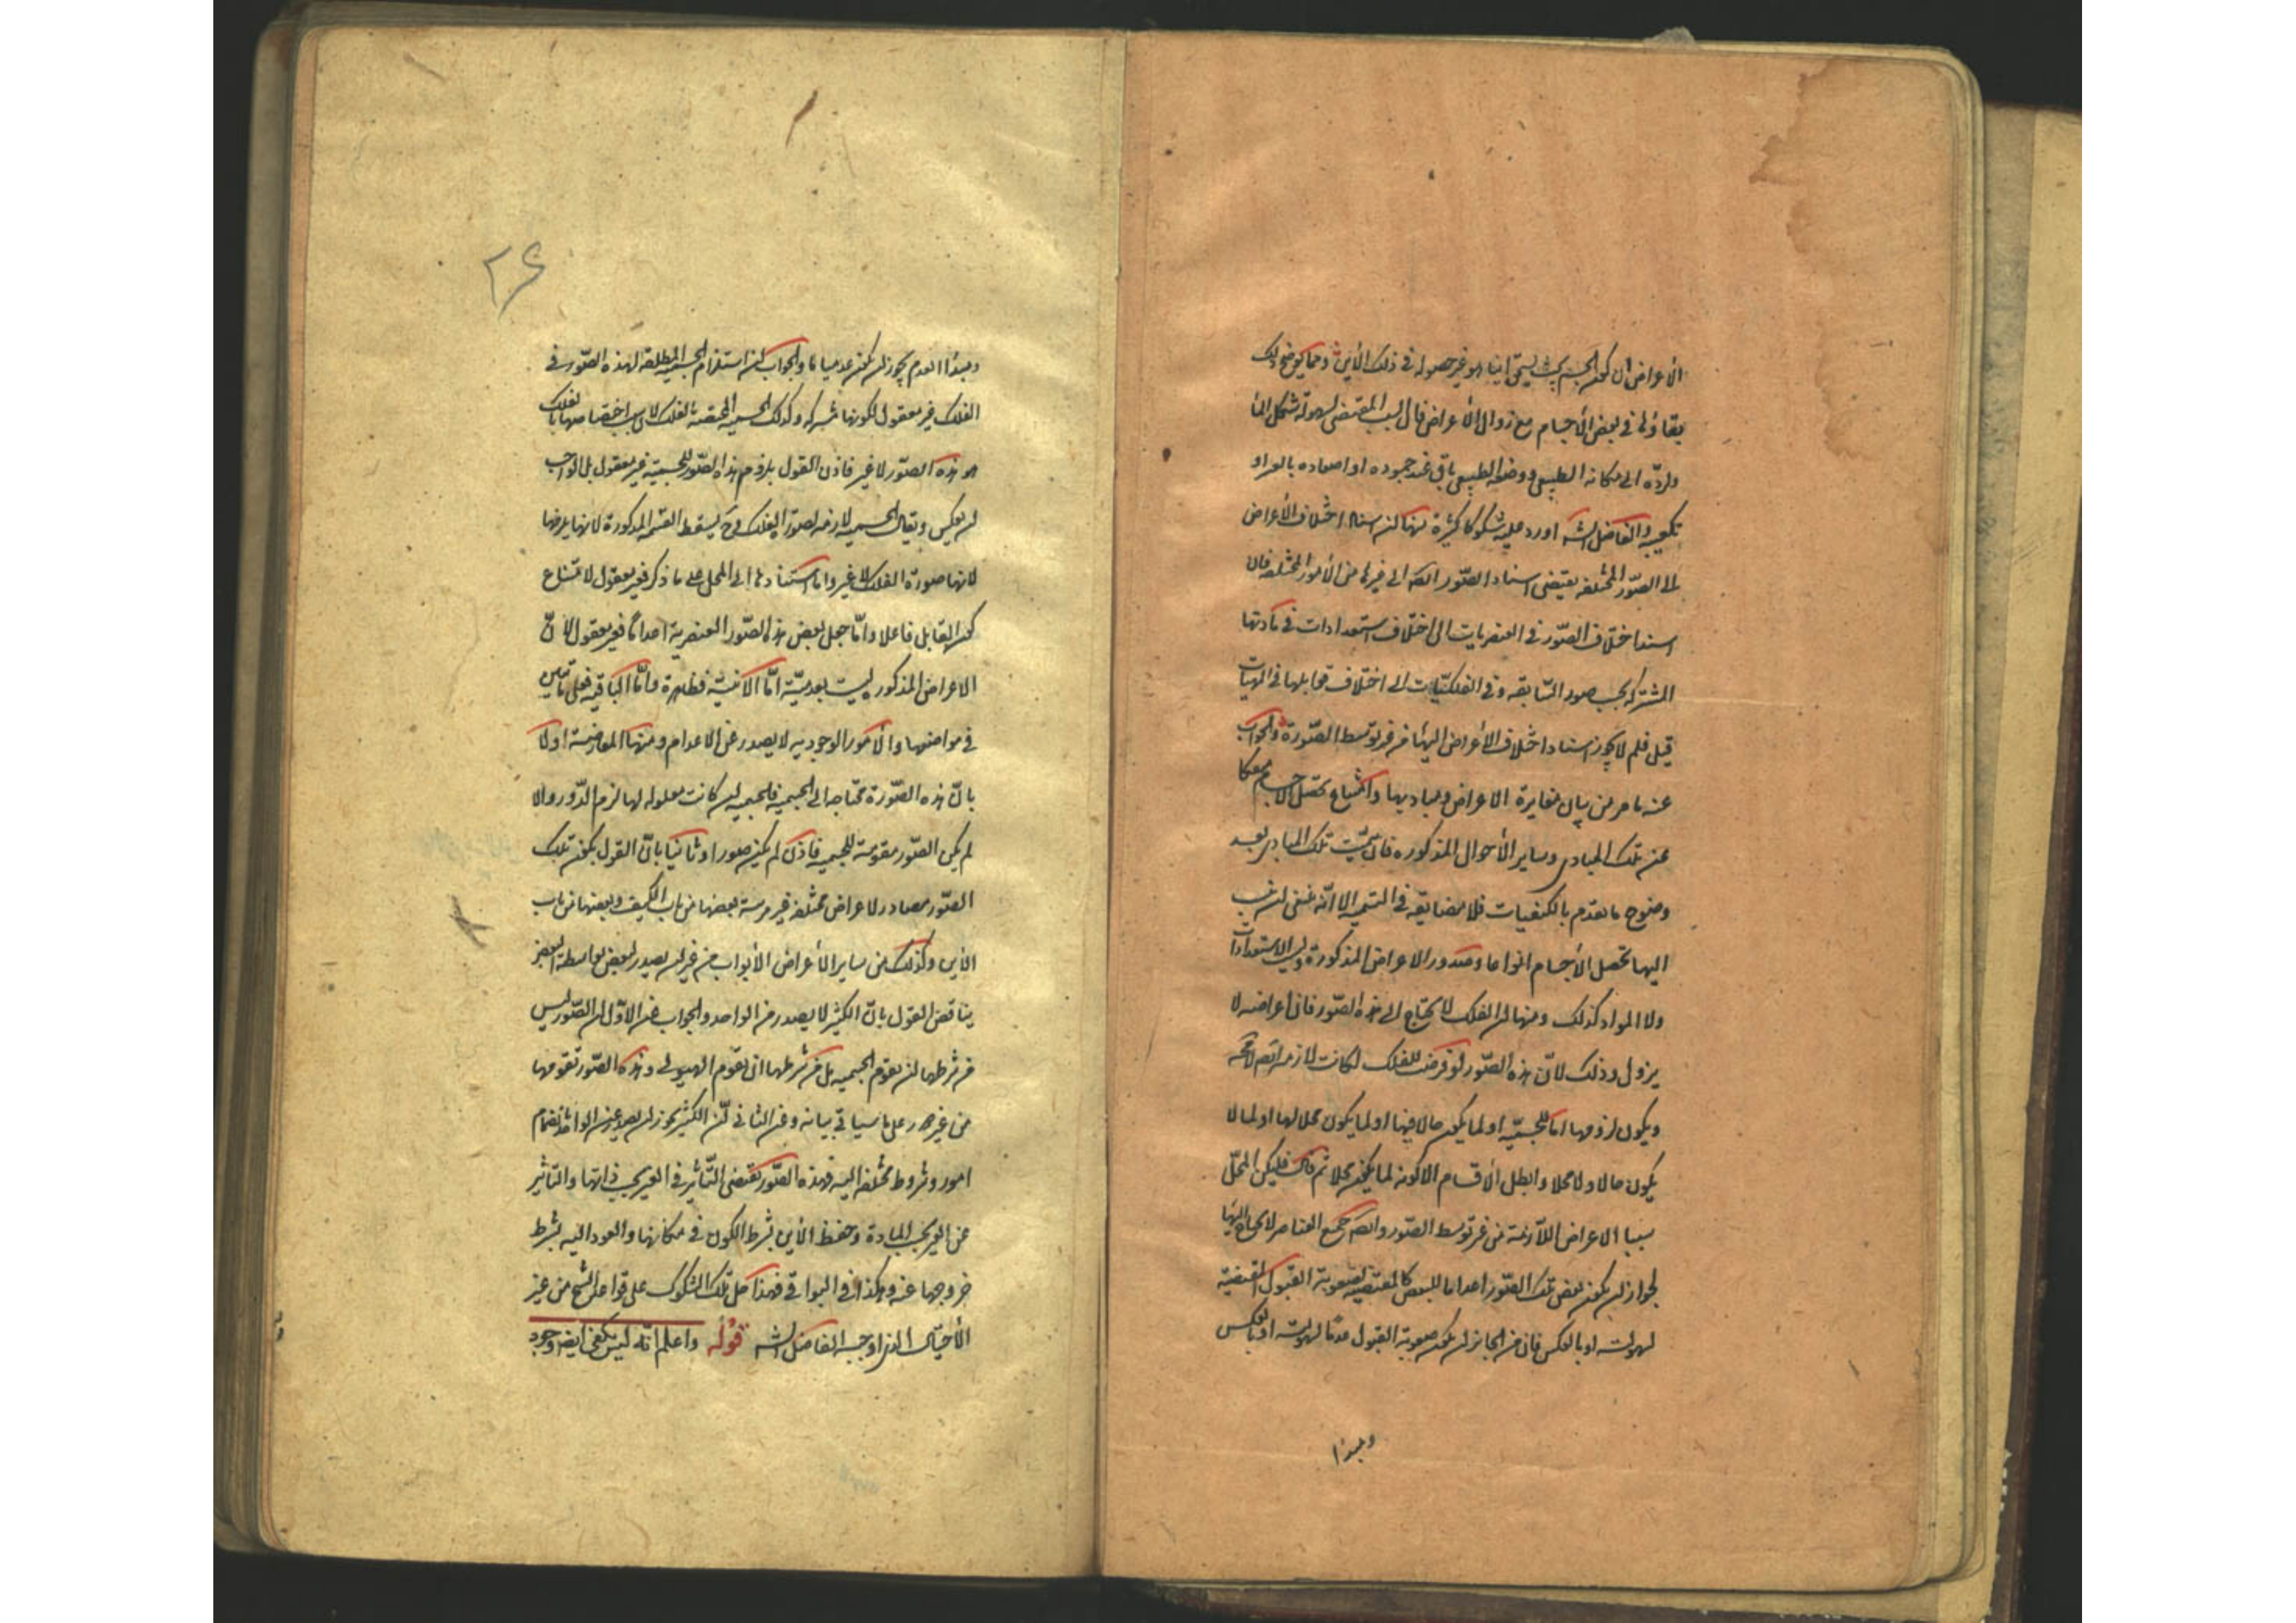 الأعراض ان كون الجسم بحيث يستحق اينا ما هو غير حصوله في ذلك الأين ومما يوضح ذلك
بقاؤها في بعض الأجسام مع زوال الأعراض فان السبب المقتضى لسهولة تشكل الماء
ولرده الى مكانه الطبيعي ووضعه الطبيعي باق عند جموده او اصعاده بالقسر او
تكعيبه والفاضل الشه اورد عليه شكوكا كثيرة منها لن اسناد اختلاف الأعراض
الى الصور المختلفه يقتضى اسناد الصور ايضه الى غيرها من الأمور المختلفه فان
اسند اختلاف الصور في العنصريات الى اختلاف استعدادات في مادتها
المشتركه بحسب صور السابقه وفي الفلكيات الى اختلاف قوابلها في الماهيات
قيل فلم لا يجوز اسناد اختلاف الأعراض اليها من غير توسط الصورة والجواب
عنه ما مر من بيان مغايرة الاعراض ومباديها وامتناع تحصل الاجسام منفكا
عن تلك المبادى وساير الأحوال المذكوره فان سميت تلك المبادى بعد
وضوح ما تقدم بالكيفيات فلا مضايقه في التسميه الا انه ينبغى لن ينسب
اليها تحصل الأجسام انواعا وصدور الاعراض المذكورة وليس الاستعدادات
ولا المواد كذلك ومنها لن الفلك لا يحتاج الى هذه الصور فان اعراضه لا
يزول وذلك لان هذه الصور لو فرضت للفلك لكانت لازمه ايضه لامحه
ويكون لزومها اما للجسميه او لما يكون حالا فيها او لما يكون محلا لها او لما لا
يكون حالا ولا محلا وابطل الأقسام الا كونه لما يكون محلا ثم قال فليكن المحل
سببا الاعراض اللازمة من غير توسط الصور وايضه جميع العناصر لا يحتاج اليها
لجواز لن يكون بعض تلك الصور اعداما للبعض كالمقتضيه لصعوبة القبول المقتضية
لسهولته او بالعكس فان من الجايز لن يكون صعوبة القبول عدما لسهولته او بالعكس
ومبدأ
٢۶
ومبدأ العدم يجوز لن يكون عدميا ما والجواب لن استلزام الجسميه المطلقه لهذه الصور في
الفلك غير معقول لكونها مشتركه وكذلك الجسميه المختصه بالفلك لان سبب اختصاصها بالفلك
هو هذه الصور لا غير فاذن القول بلزوم هذه الصور للجسميه غير معقول بل الواجب
لن يعكس ويقال الجسميه لازمه لصور الفلك وح يسقط القسمه المذكورة لانها يلزمها
لانها صورة الفلك لا غير واما استنادها الى المحل على ما ذكر فغير معقول لامتناع
كون القابل فاعلا واما جعل بعض هذه الصور العنصرية اعداما فغير معقول لان
الاعراض المذكور ليست بعدميه اما الاينيه فظاهرة واما الباقيه فعلى ما تبين
في مواضعها والأمور الوجوديه لا يصدر عن الاعدام ومنها المعارضة اولا
بان هذه الصورة محتاجه الى الجسميه فالجسميه لن كانت معلوله لها لزم الدور والا
لم يكن الصور مقومة للجسميه فاذن لم يكن صورا وثانيا بان القول بكون تلك
الصور مصادر لاعراض مختلفه غير مرتبة بعضها من باب الكيف وبعضها من باب
الأين وكذلك من ساير الأعراض الأبواب من غير لن يصدر البعض بواسطة البعض
يناقض القول بان الكثير لا يصدر من الواحد والجواب عن الأول لن الصور ليس
من شرطها لن يقوم الجسميه بل من شرطها ان يقوم الهيولى وهذه الصور تقومها
من غير دور على ما سياتي بيانه وعن الثاني لن الكثير يجوز لن يصدر عن الواحد بانضمام
امور وشروط مختلفه اليه فهذه الصور تقتضى التأثير في الغير بحسب ذاتها والتأثر
عن الغير بحسب المادة وحفظ الأين بشرط الكون في مكانها والعود اليه بشرط
خروجها عنه وهكذا في البواقي فهذا حل تلك الشكوك على قواعد الشيخ من غير
الأحتياج الذي اوجبه الفاضل الشه قوله واعلم انه ليس يكفى ايضه وجود